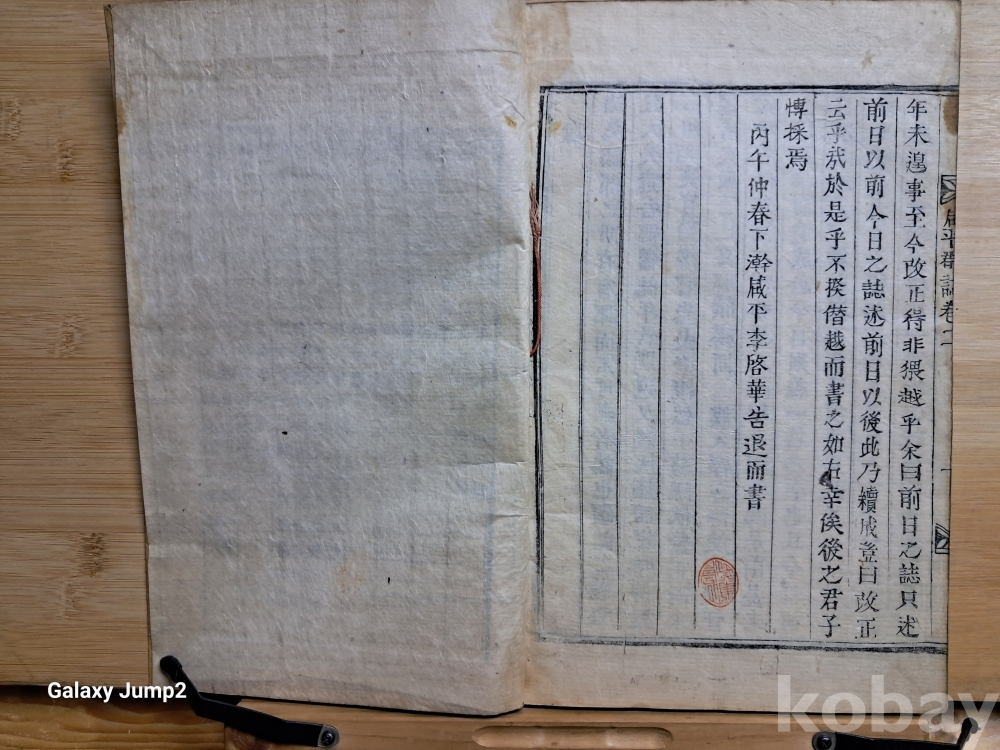 咸平郡誌卷二
年未遑事至今改正得非猥越乎余曰前日之誌只述
前日以前今日之誌述前日以後此乃續成豈曰改正
云乎哉於是乎不揆僭越而書之如右幸俟後之君子
博採焉
丙午仲春下澣咸平李啓華告退而書
Galaxy Jump2
kobay